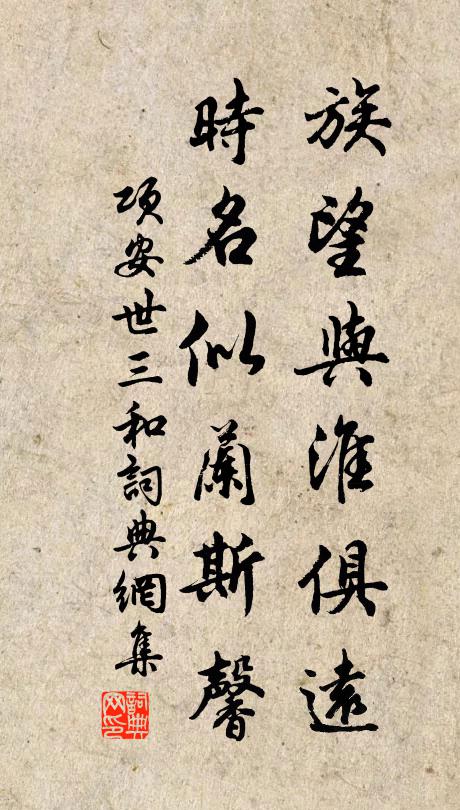 族望與淮俱遠
時名似蘭斯馨
項安世三和詞典網集
詞典网印